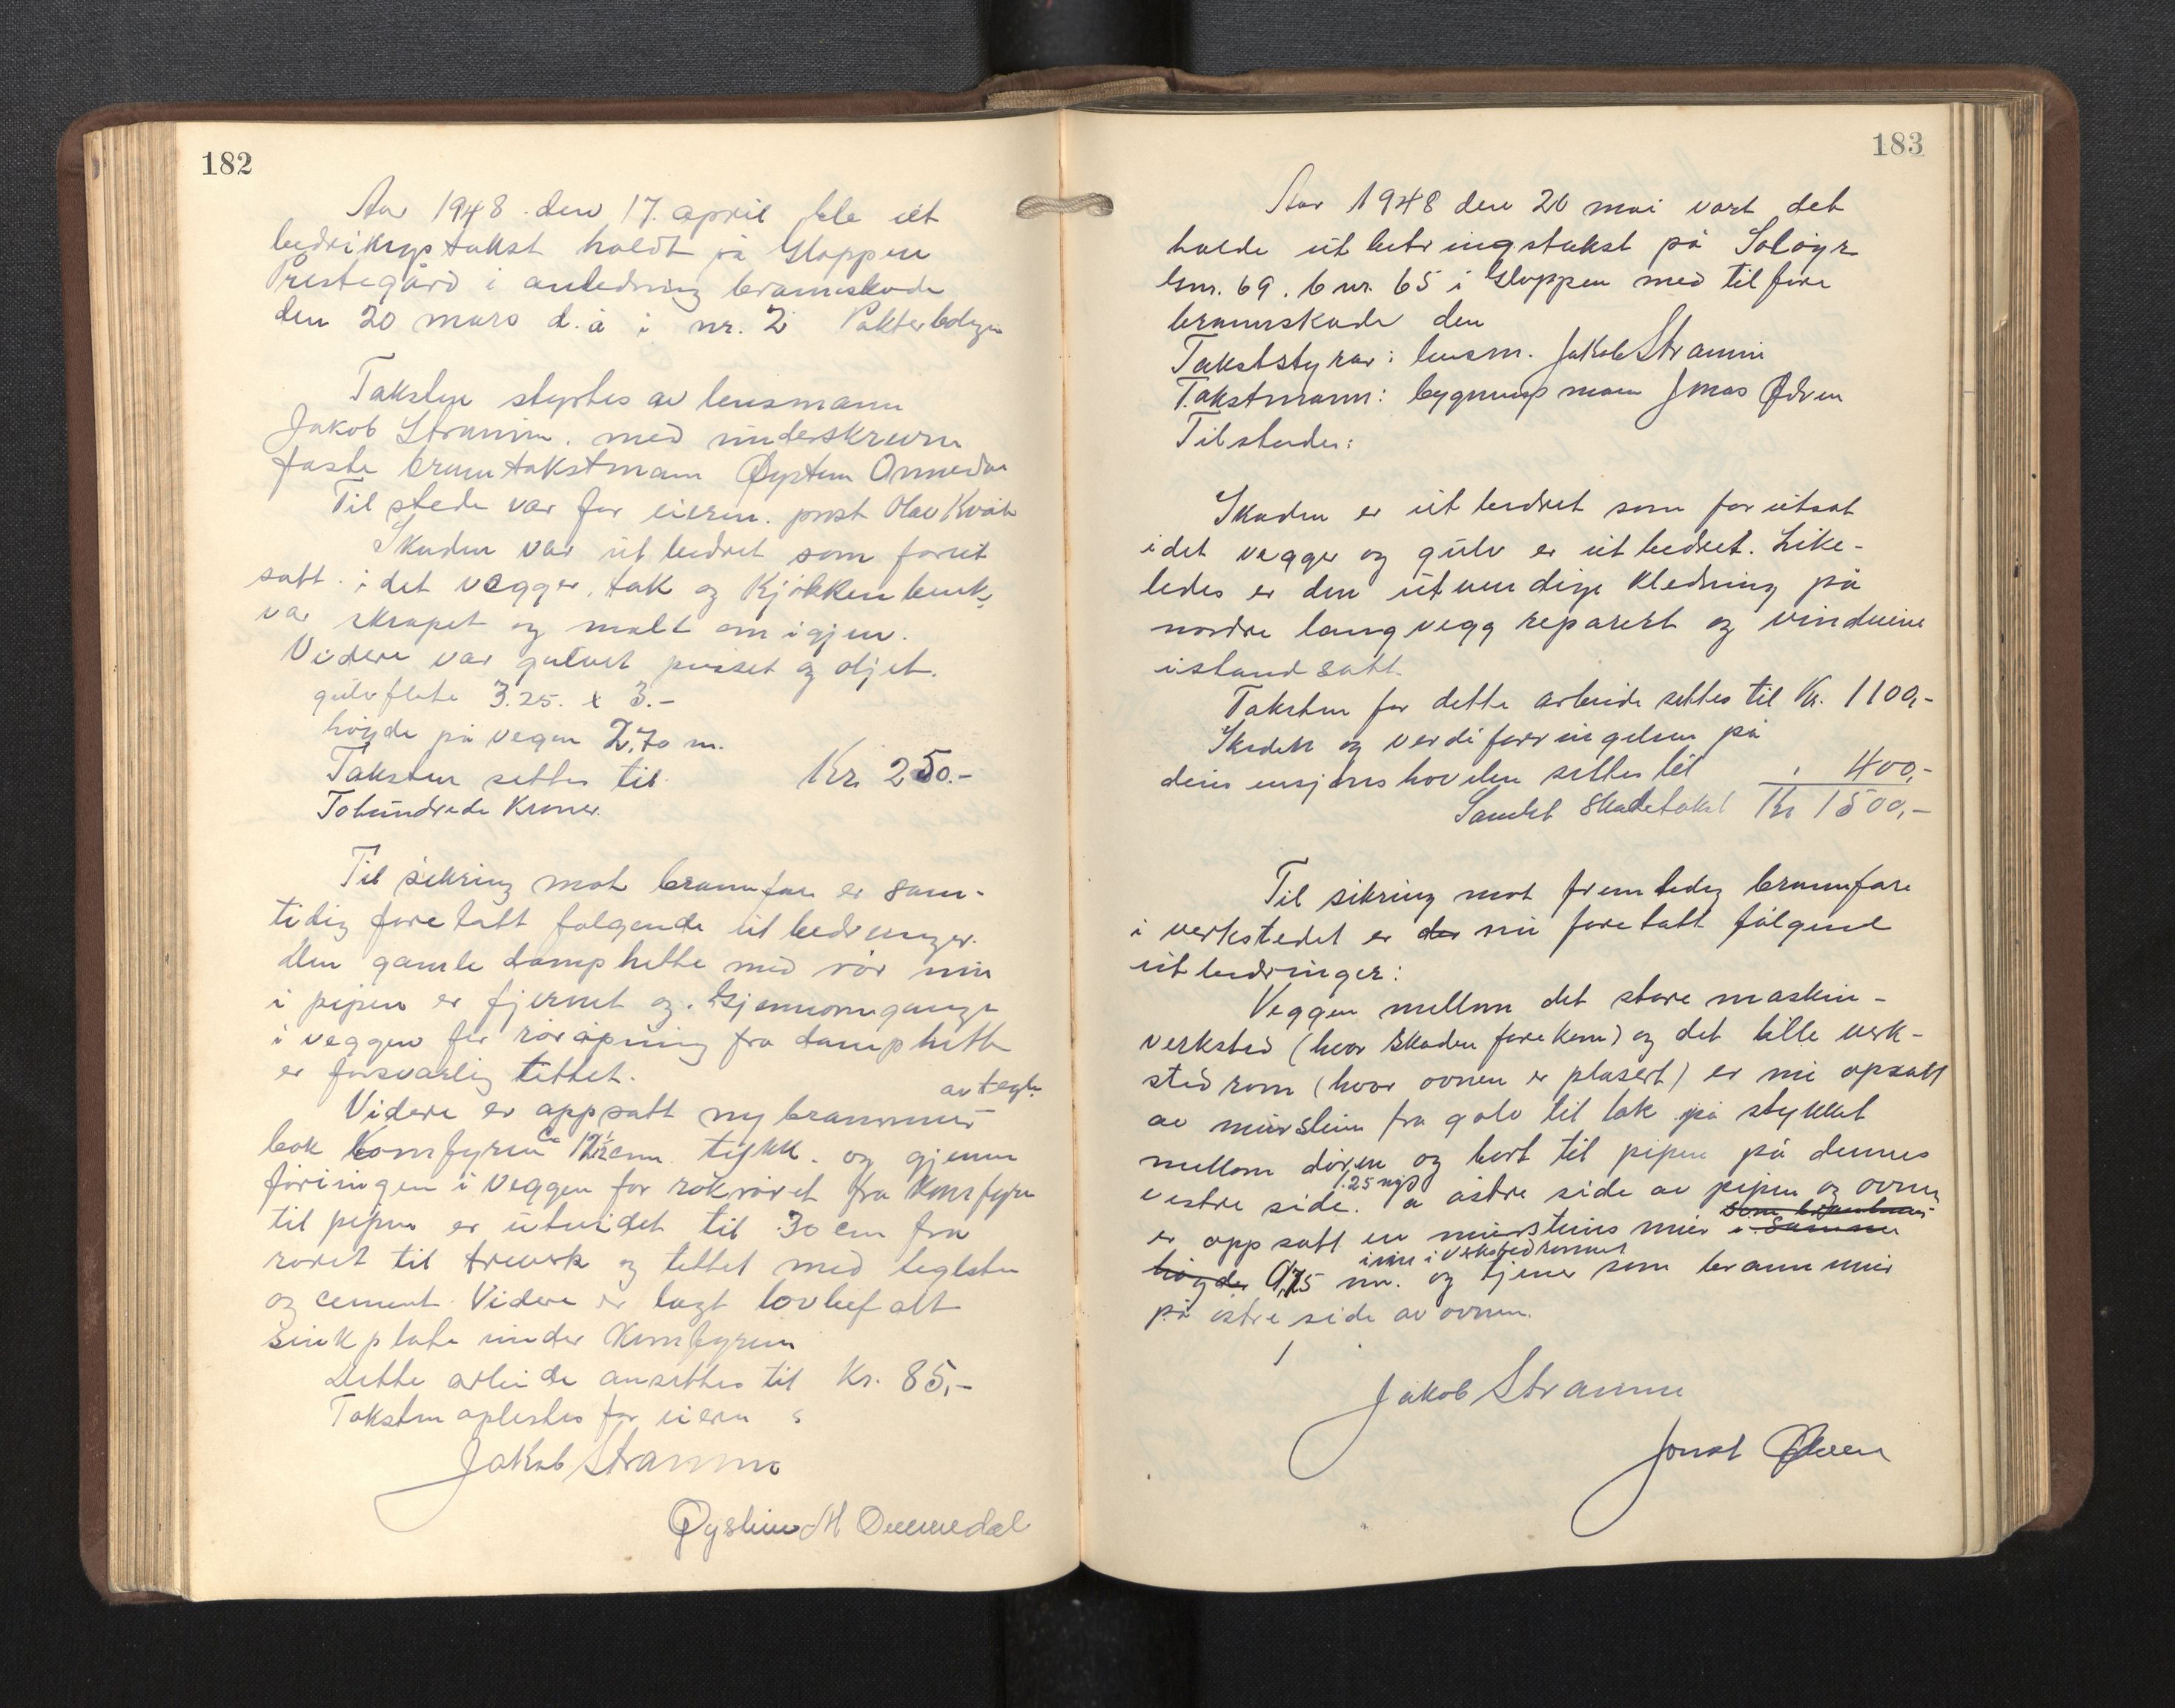 182
Aar 1948 den 17. april ble ut
bedringstakst holdt på Gloppen
Prestegård i anledning brannskade
den 20 mars d.å i nr. 2 Pakterboligen
Taksten styrtes av lensmann
Jakob Stramme. med underskrevne
faste branntakstmann Øystein Ommedal
Til stede var for eieren. prost Olav Kvåle
Skaden var utbedret som forut
satt. i det vegger, tak og Kjøkkenbenk
var skrapet og malt om igjen.
Videre var gulvet pusset og oljet.
gulvflate 3.25. x 3.-
høyde på vegen 2,70 m.
Taksten settes til Kr. 250.-
Tohundrede Kroner.
Til sikring mot brannfare er sam-
tidig foretatt følgende utbedringer.
den gamle damphette med rör inn
i pipen er fjernet og. Gjennomgange
i veggen for röråpning fra damphette
er forsvarlig tettet.
av tegl.
Videre er oppsatt ny brannmur
bak Komfyren ca 12½ cm. tykk. og gjennem
föringen i veggen for rökröret fra Komfyren
til pipen er utvidet til 30 cm fra
röret til treverk og tettet med teglsten
og cement. Videre er lagt lovbefalt
sinkplate under Komfyren
Dette arbeide ansettes til Kr. 85,-
Taksten oplestes for eieren
Jakob Stramme
Øystein M Ommedal
183
Aar 1948 den 20 mai vart det
halde utbetringstakst på Soløyr
Gnr. 69. bnr. 65 i Gloppen med tilføre
brannskade den
Takststyrar: lensm. Jakob Stramme
Takstmann: bygningsmann Jonas Ødven
Tilstede:
Skaden er utbedret som forutsat
idet vegger og gulv er utbedret. Like-
ledes er den utvendige kledning på
nordre langvegg reparert og vinduene
istandsatt.
Taksten for dette arbeide settes til Kr. 1100,-
Skaden og verdiforringelsen på
dimensjonshøvelen settes til " 400,-
Samlet Skadetakst Kr 1500,-
Til sikring mot fremtidig brannfare
i verkstedet er der nu foretatt følgend
utbedringer:
Veggen mellom det store maskin-
verksted (hvor skaden forekom) og det lille verk-
stedrom (hvor ovnen er plasert) er nu opsatt
av murstein fra golv til tak på stykket
mellom dören og bort til pipen på dennes
1.25 m
vestre side. På östre side av pipen og ovnen
er oppsatt en murstens mur i samme
inn i verkstedrommet
høyde 0,75 m. og tjener som brannmur
på östre side av ovnen.
Jakob Stramme
Jonas Ødven